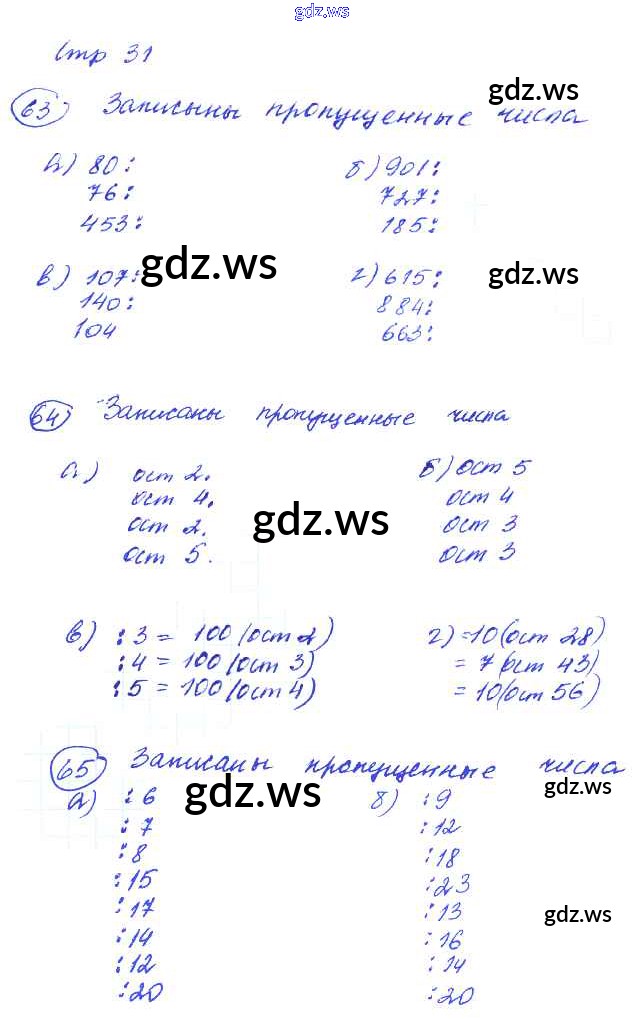 gdz.ws
Стр 31
gdz.ws
63) Записыны пропущенные числа
а) 80: б) 901:
76: 727:
453: 185:
gdz.ws
в) 107: г) 615: gdz.ws
140: 884:
104 663:
64) Записаны пропущенные числа
а) ост 2. б) ост 5
ост 4. ост 4
ост 2. gdz.ws ост 3
ост 5. ост 3
в) :3 = 100 (ост 2) г) =10 (ост 28)
:4 = 100 (ост 3) = 7 (ост 43)
:5 = 100 (ост 4) = 10 (ост 56)
65) Записаны пропущенные числа
gdz.ws gdz.ws
а) :6 б) :9
:7 :12
:8 :18
:15 :23
:17 :13 gdz.ws
:14 :16
:12 :14
:20 :20